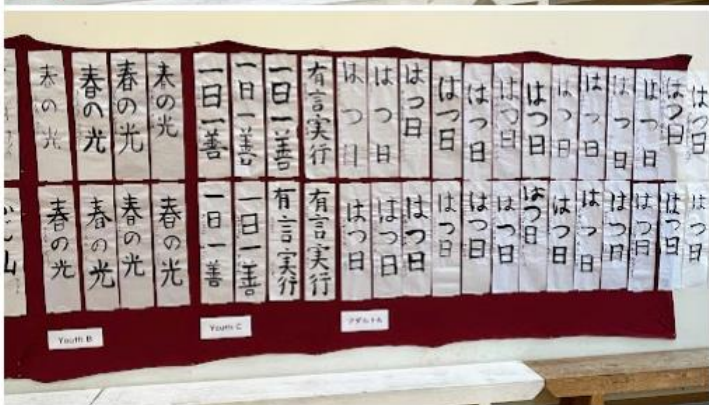 春の光
春の光
春の光
春の光
一日一善
一日一善
一日一善
有言実行
はつ日
はつ日
はつ日
はつ日
はつ日
はつ日
はつ日
はつ日
はつ日
はつ日
はつ日
はつ日
はつ日
山
春の光
春の光
春の光
春の光
一日一善
一日一善
有言実行
有言実行
はつ日
はつ日
はつ日
はつ日
はつ日
はつ日
はつ日
はつ日
はつ日
はつ日
はつ日
はつ日
はつ日
Youth B
Youth C